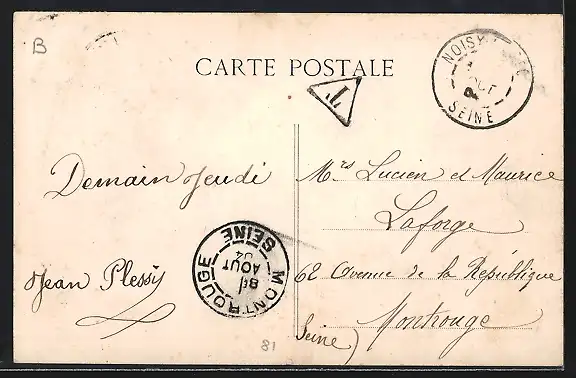 B
CARTE POSTALE
T
NOISY
SEINE
Demain Jeudi
Jean Plessy
MONTROUGE
SEINE
AOUT
04
Mrs Lucien et Maurice
Laforge
62 Avenue de la République
Montrouge
Seine)
81